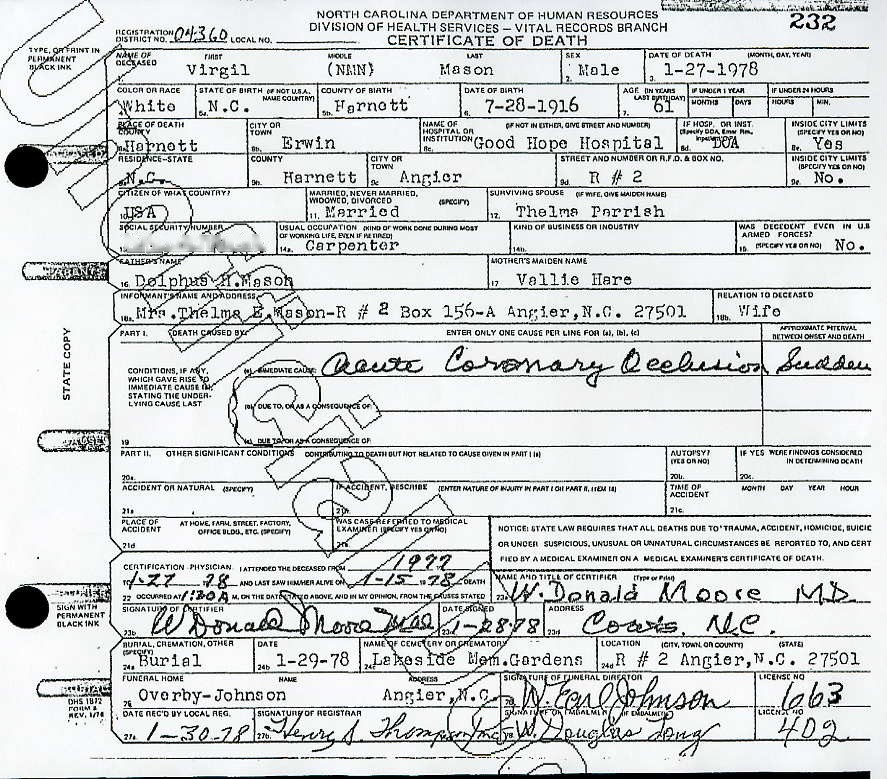 NORTH CAROLINA DEPARTMENT OF HUMAN RESOURCES
232
DIVISION OF HEALTH SERVICES – VITAL RECORDS BRANCH
REGISTRATION DISTRICT NO. 04360 LOCAL NO.
CERTIFICATE OF DEATH
TYPE, OR PRINT IN PERMANENT BLACK INK
NAME OF DECEASED FIRST MIDDLE LAST SEX DATE OF DEATH (MONTH, DAY, YEAR)
1. Virgil (NMN) Mason 2. Male 3. 1-27-1978
COLOR OR RACE STATE OF BIRTH (IF NOT U.S.A., NAME COUNTRY) COUNTY OF BIRTH DATE OF BIRTH AGE (IN YEARS LAST BIRTHDAY) IF UNDER 1 YEAR MONTHS DAYS IF UNDER 24 HOURS HOURS MIN.
4. White 5a. N.C. 5b. Harnett 6. 7-28-1916 7. 61
PLACE OF DEATH COUNTY CITY OR TOWN NAME OF HOSPITAL OR INSTITUTION (IF NOT IN EITHER, GIVE STREET AND NUMBER) IF HOSP. OR INST. (Specify DOA, Emer Rm., Inpatient) INSIDE CITY LIMITS (SPECIFY YES OR NO)
8a. Harnett 8b. Erwin 8c. Good Hope Hospital 8d. DOA 8e. Yes
RESIDENCE–STATE COUNTY CITY OR TOWN STREET AND NUMBER OR R.F.D. & BOX NO. INSIDE CITY LIMITS (SPECIFY YES OR NO)
9a. N.C. 9b. Harnett 9c. Angier 9d. R # 2 9e. No.
CITIZEN OF WHAT COUNTRY? MARRIED, NEVER MARRIED, WIDOWED, DIVORCED (SPECIFY) SURVIVING SPOUSE (IF WIFE, GIVE MAIDEN NAME)
10. USA 11. Married 12. Thelma Parrish
SOCIAL SECURITY NUMBER USUAL OCCUPATION (KIND OF WORK DONE DURING MOST OF WORKING LIFE, EVEN IF RETIRED) KIND OF BUSINESS OR INDUSTRY WAS DECEDENT EVER IN U.S ARMED FORCES?
13. 14a. Carpenter 14b. 15. (SPECIFY YES OR NO) No.
PARENTS
FATHER'S NAME MOTHER'S MAIDEN NAME
16. Dolphus H. Mason 17 Vallie Hare
INFORMANT'S NAME AND ADDRESS RELATION TO DECEASED
18a. Mrs. Thelma E. Mason-R # 2 Box 156-A Angier, N.C. 27501 18b. Wife
STATE COPY
PART I. DEATH CAUSED BY: ENTER ONLY ONE CAUSE PER LINE FOR (a), (b), (c) APPROXIMATE INTERVAL BETWEEN ONSET AND DEATH
CONDITIONS, IF ANY, WHICH GAVE RISE TO IMMEDIATE CAUSE (a), STATING THE UNDERLYING CAUSE LAST
(a) IMMEDIATE CAUSE: Acute Coronary Occlusion Sudden
(b) DUE TO, OR AS A CONSEQUENCE OF:
CAUSE
19 (c) DUE TO, OR AS A CONSEQUENCE OF:
PART II. OTHER SIGNIFICANT CONDITIONS CONTRIBUTING TO DEATH BUT NOT RELATED TO CAUSE GIVEN IN PART I (a) AUTOPSY? (YES OR NO) IF YES WERE FINDINGS CONSIDERED IN DETERMINING DEATH
20a. 20b. 20c.
ACCIDENT OR NATURAL (SPECIFY) IF ACCIDENT, DESCRIBE (ENTER NATURE OF INJURY IN PART I OR PART II, ITEM 18) TIME OF ACCIDENT MONTH DAY YEAR HOUR
21a 21b. 21c.
PLACE OF ACCIDENT AT HOME, FARM, STREET, FACTORY, OFFICE BLDG., ETC. (SPECIFY) WAS CASE REFERRED TO MEDICAL EXAMINER (SPECIFY YES OR NO)
21d 21e
NOTICE: STATE LAW REQUIRES THAT ALL DEATHS DUE TO TRAUMA, ACCIDENT, HOMICIDE, SUICID
OR UNDER SUSPICIOUS, UNUSUAL OR UNNATURAL CIRCUMSTANCES BE REPORTED TO, AND CERT
FIED BY A MEDICAL EXAMINER ON A MEDICAL EXAMINER'S CERTIFICATE OF DEATH.
CERTIFICATION–PHYSICIAN: I ATTENDED THE DECEASED FROM 1977
TO 1-27 78 AND LAST SAW HIM/HER ALIVE ON 1-15 78. DEATH
22 OCCURRED AT 1:30 A M. ON THE DATE STATED ABOVE, AND IN MY OPINION, FROM THE CAUSES STATED
NAME AND TITLE OF CERTIFIER (Type or Print)
23a W. Donald Moore MD
SIGN WITH PERMANENT BLACK INK
SIGNATURE OF CERTIFIER DATE SIGNED ADDRESS
23b W Donald Moore MD 23c 1-28-78 23d Coats, N.C.
BURIAL, CREMATION, OTHER (SPECIFY) DATE NAME OF CEMETERY OR CREMATORY LOCATION (CITY, TOWN, OR COUNTY) (STATE)
24a Burial 24b 1-29-78 24c Lakeside Mem. Gardens 24d R # 2 Angier, N.C. 27501
BURIAL
FUNERAL HOME NAME ADDRESS SIGNATURE OF FUNERAL DIRECTOR LICENSE NO
25 Overby-Johnson Angier, N.C. W. Earl Johnson 663
DHS 1872
FORM 8
REV. 1/78
DATE REC'D BY LOCAL REG. SIGNATURE OF REGISTRAR SIGNATURE OF EMBALMER (IF EMBALMED) LICENSE NO
27a. 1-30-78 27b. Henry S. Thompson W. Douglas Tong 402